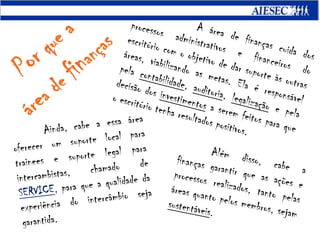 AIESEC
Por que a
área de finanças
A área de finanças cuida dos
processos administrativos e financeiros do
escritório com o objetivo de dar suporte às outras
áreas, viabilizando as metas. Ela é responsável
pela contabilidade, auditoria, legalização e pela
decisão dos investimentos a serem feitos para que
o escritório tenha resultados positivos.
Ainda, cabe a essa área
oferecer um suporte local para
trainees e suporte legal para
intercambistas, chamado de
SERVICE, para que a qualidade da
experiência do intercâmbio seja
garantida.
Além disso, cabe a
finanças garantir que as ações e
processos realizados, tanto pelas
áreas quanto pelos membros, sejam
sustentáveis.